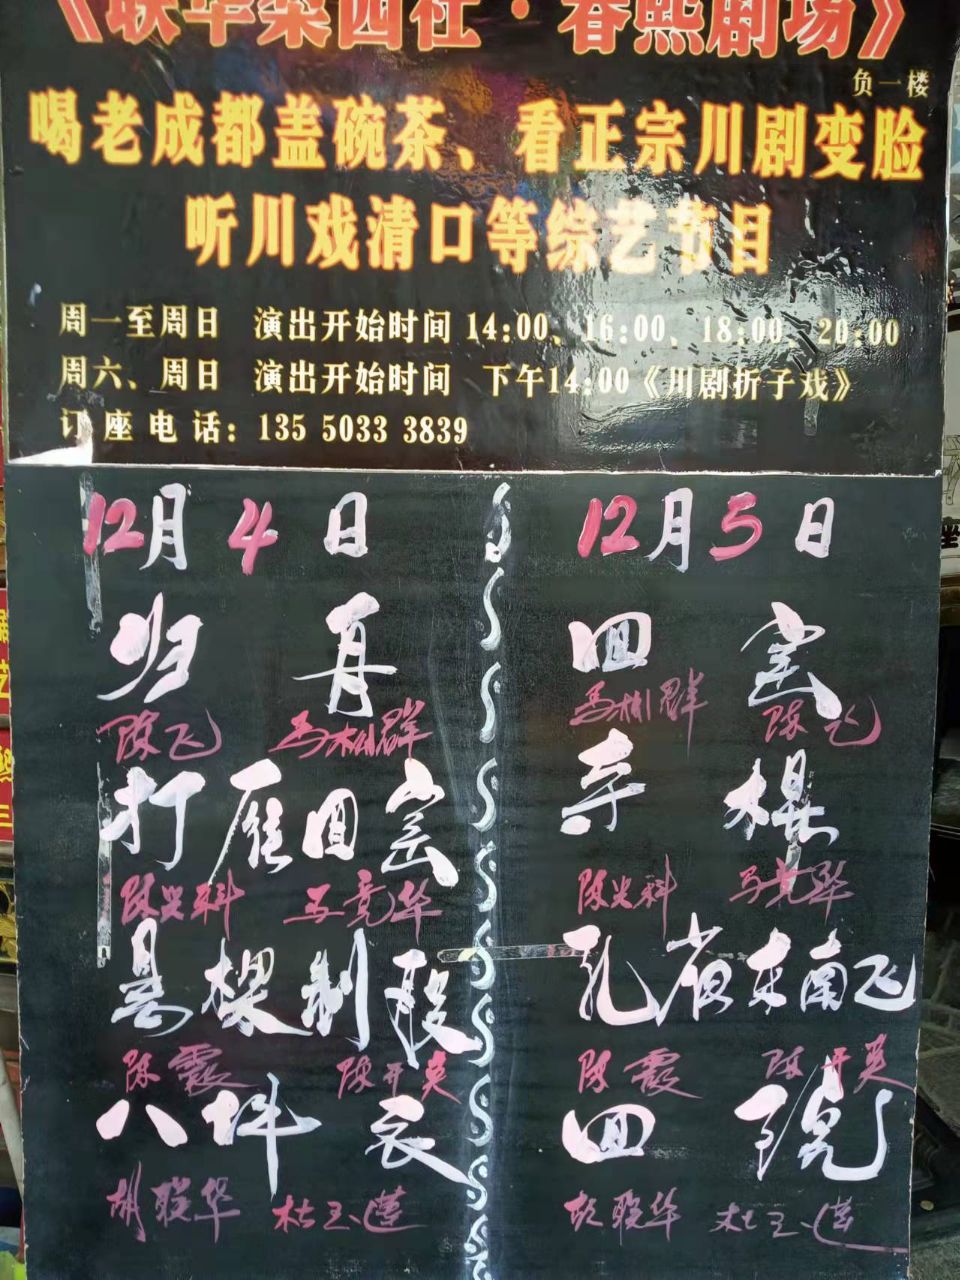 《联华梨园社·春熙剧场》
负一楼
喝老成都盖碗茶、看正宗川剧变脸
听川戏清口等综艺节目
周一至周日 演出开始时间 14:00、16:00、18:00、20:00
周六、周日 演出开始时间 下午14:00《川剧折子戏》
订座电话：135 5033 3839
12月4日
归
陈飞
打雁回窑
陈世科 马竞华
悬梁
陈霞 陈开英
八件衣
胡联华 杜玉莲
12月5日
回窑
陈飞
陈世科 马竞华
孔雀东南飞
陈霞 陈开英
回
胡联华 杜玉莲